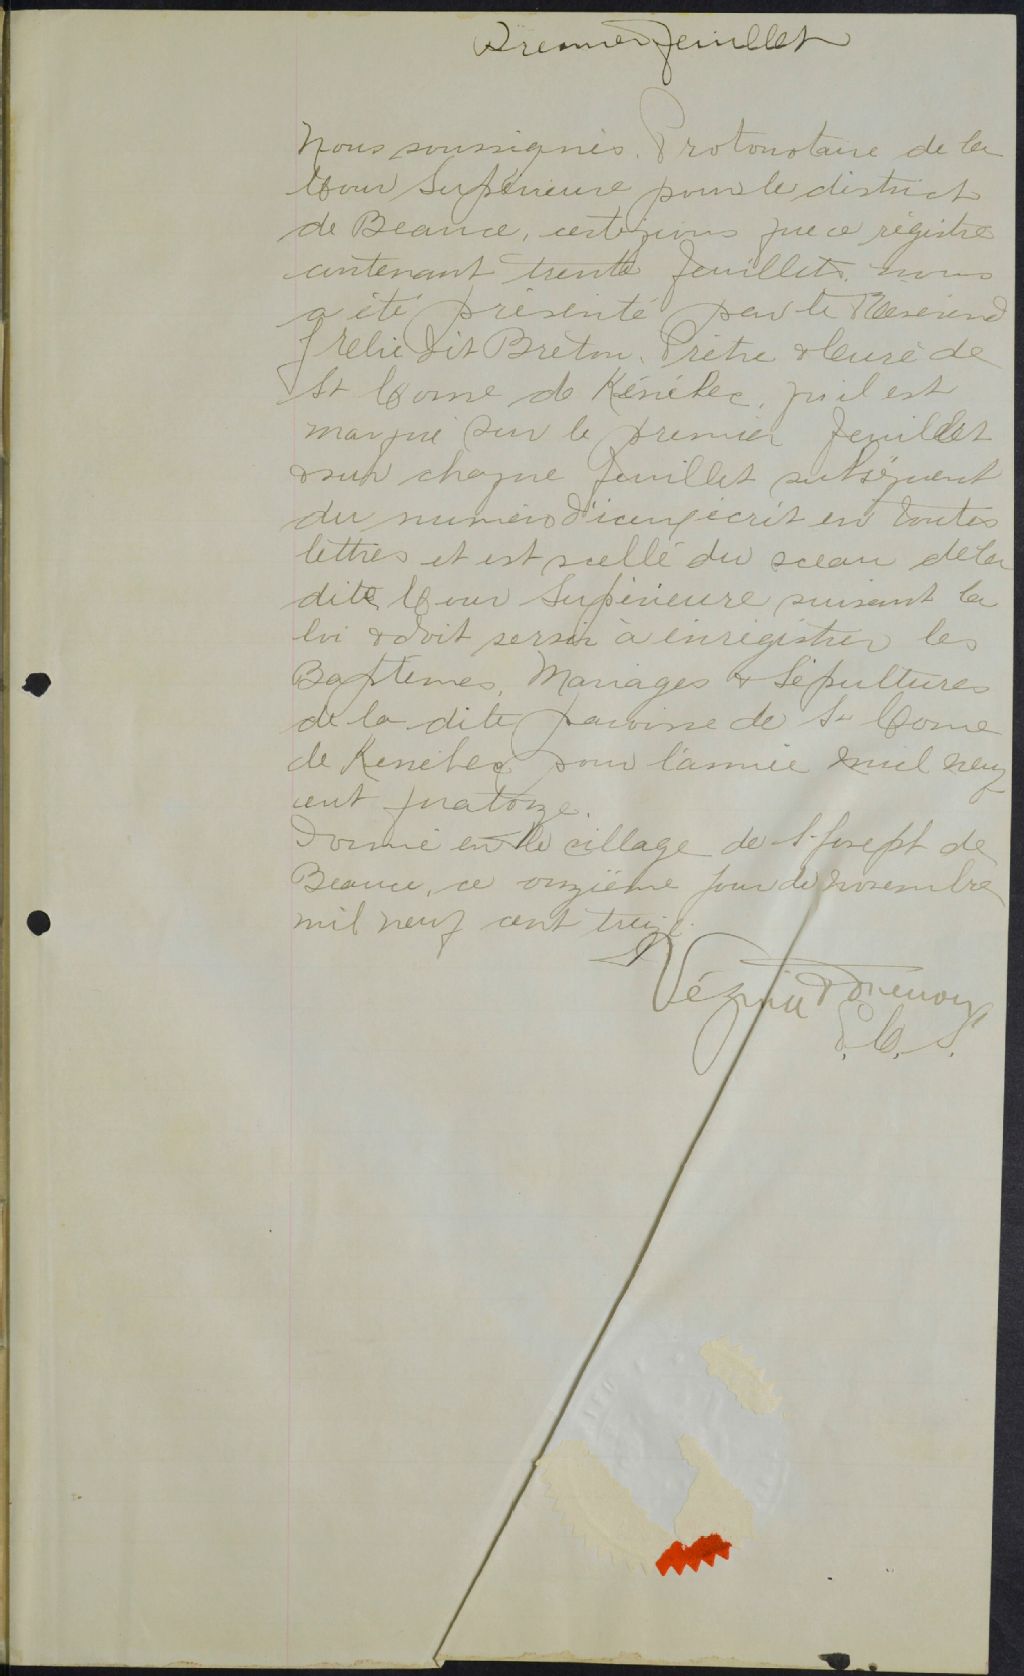 Premier feuillet
Nous soussignés. Protonotaire de la
Cour Supérieure pour le district
de Beauce, certifions que ce régistre
contenant trente feuillets nous
a été présenté par le Révérend
Frélie dit Breton. Prêtre & Curé de
St Come de Kénébec, qu'il est
marqué sur le premier feuillet
& sur chaque feuillet subséquent
du numéro d'iceux écrit en toutes
lettres et est scellé du sceau de la
dite Cour Supérieure suivant la
loi & doit servir à enrégistrer les
Baptêmes, Mariages & Sépultures
de la dite paroisse de St Come
de Kenebec pour l'année mil neuf
cent quatorze.
Donné en le village de St Joseph de
Beauce, ce onzième jour de novembre
mil neuf cent treize.
Vézina &
P.C.S.